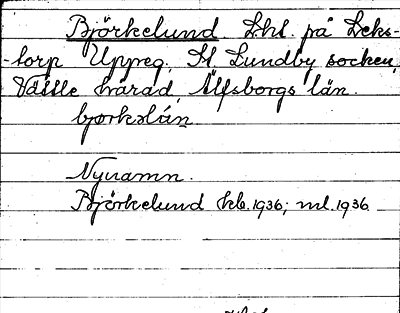 Björkelund. Lht. på Leks-
torp Uppreg. St. Lundby socken,
Vättle härad, Älfsborgs län.
bjorkəlún
Nynamn.
Björkelund kb. 1936; ml. 1936